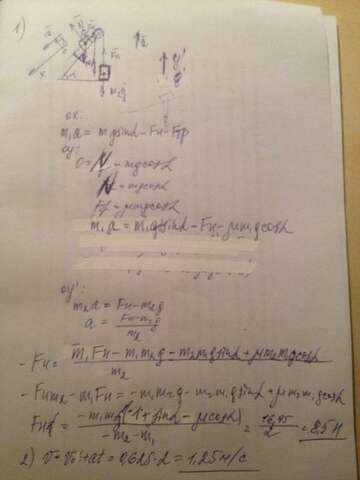 1)
ox:
m₁a = m₁gsinα - Fн - Fтр
oy:
0 = N - mgcosα
N = mgcosα
Fтр = μmgcosα
m₁a = m₁gsinα - Fн - μm₁gcosα
oy':
m₂a = Fн - m₂g
a = (Fн - m₂g)/m₂
- Fн = (m₁Fн - m₁m₂g - m₂m₁gsinα + μm₂m₁gcosα)/m₂
- Fнm₂ - m₁Fн = -m₁m₂g - m₂m₁gsinα + μm₂m₁gcosα
Fн = (-m₁m₂g(1 + sinα - μcosα))/(-m₂ - m₁) = 16,95/2 = 8,5 Н
2) v = v₀ + at = 0,625·2 = 1,25 м/с